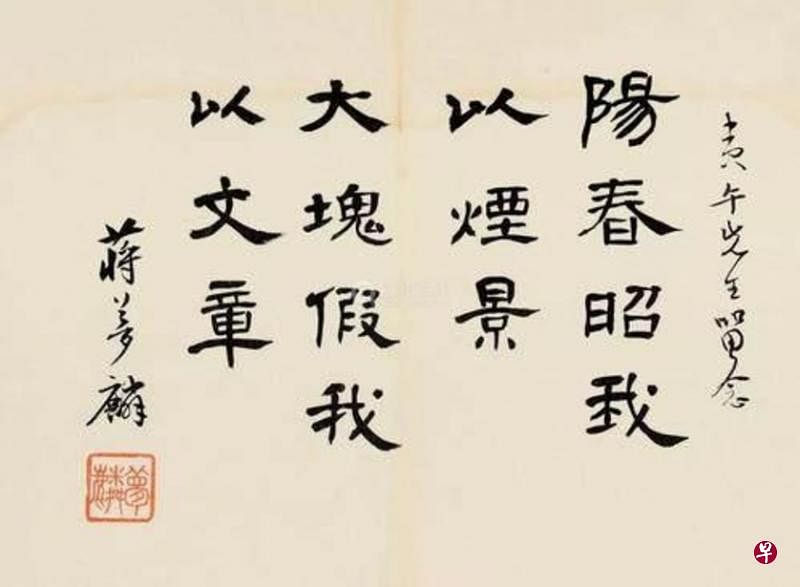 寅午先生留念
陽春昭我
以煙景
大塊假我
以文章
蔣夢麟
夢麟
早